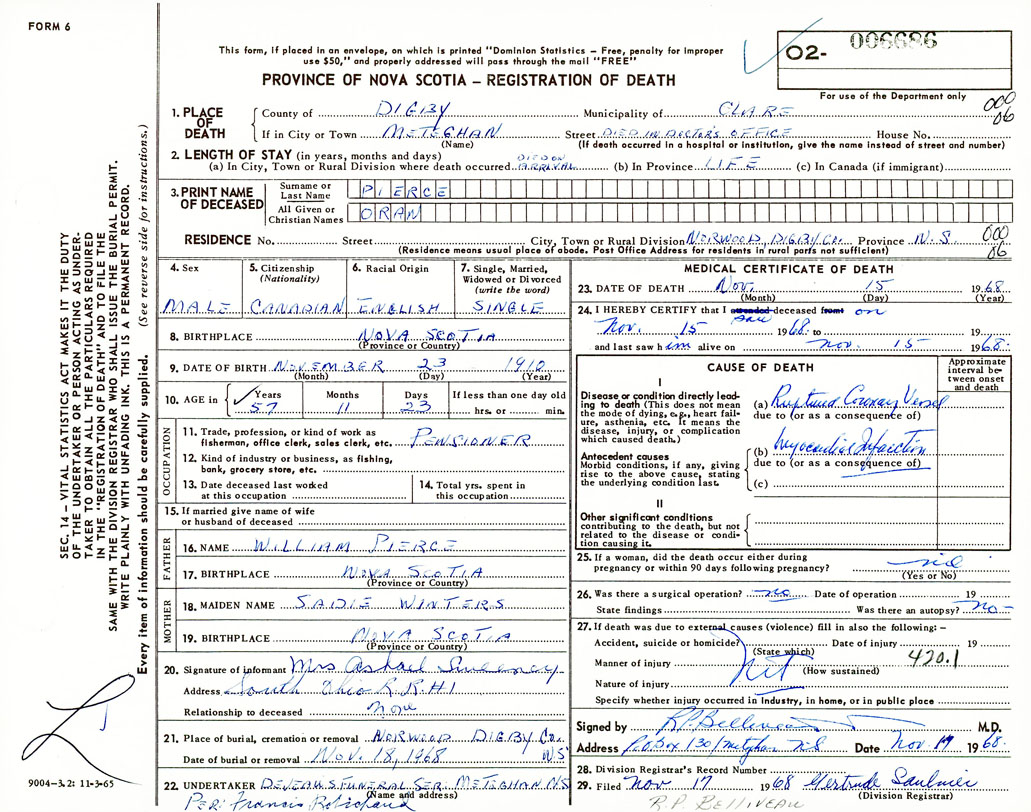 FORM 6
This form, if placed in an envelope, on which is printed "Dominion Statistics – Free, penalty for improper
use $50," and properly addressed will pass through the mail "FREE"
PROVINCE OF NOVA SCOTIA – REGISTRATION OF DEATH
O2- 006686
For use of the Department only
000
06
SEC. 14 – VITAL STATISTICS ACT MAKES IT THE DUTY
OF THE UNDERTAKER OR PERSON ACTING AS UNDER-
TAKER TO OBTAIN ALL THE PARTICULARS REQUIRED
IN THE "REGISTRATION OF DEATH" AND TO FILE THE
SAME WITH THE DIVISION REGISTRAR WHO SHALL ISSUE THE BURIAL PERMIT.
WRITE PLAINLY WITH UNFADING INK. THIS IS A PERMANENT RECORD.
Every item of information should be carefully supplied. (See reverse side for instructions.)
1. PLACE OF DEATH
County of DIGBY Municipality of CLARE
If in City or Town METEGHAN Street DIED IN DOCTOR'S OFFICE House No.
(Name) (If death occurred in a hospital or institution, give the name instead of street and number)
2. LENGTH OF STAY (in years, months and days)
(a) In City, Town or Rural Division where death occurred DIED ON ARRIVAL (b) In Province LIFE (c) In Canada (if immigrant)
3. PRINT NAME OF DECEASED
Surname or Last Name PIERCE
All Given or Christian Names ORAN
RESIDENCE No. Street City, Town or Rural Division NORWOOD, DIGBY CO. Province N.S. 000
06
(Residence means usual place of abode. Post Office Address for residents in rural parts not sufficient)
4. Sex MALE
5. Citizenship (Nationality) CANADIAN
6. Racial Origin ENGLISH
7. Single, Married, Widowed or Divorced (write the word) SINGLE
8. BIRTHPLACE NOVA SCOTIA
(Province or Country)
9. DATE OF BIRTH NOVEMBER 23 1910
(Month) (Day) (Year)
10. AGE in Years 57 Months 11 Days 23 If less than one day old hrs. or min.
OCCUPATION
11. Trade, profession, or kind of work as
fisherman, office clerk, sales clerk, etc. PENSIONER
12. Kind of industry or business, as fishing,
bank, grocery store, etc.
13. Date deceased last worked
at this occupation
14. Total yrs. spent in
this occupation
15. If married give name of wife
or husband of deceased
FATHER
16. NAME WILLIAM PIERCE
17. BIRTHPLACE NOVA SCOTIA
(Province or Country)
MOTHER
18. MAIDEN NAME SADIE WINTERS
19. BIRTHPLACE NOVA SCOTIA
(Province or Country)
20. Signature of informant Mrs Sweeney
Address South Ohio R.R.#1
Relationship to deceased none
21. Place of burial, cremation or removal NORWOOD DIGBY Co.
Date of burial or removal Nov. 18, 1968 N.S
22. UNDERTAKER DEVEAU'S FUNERAL SER. METEGHAN NS
(Name and address)
Per: Francis
MEDICAL CERTIFICATE OF DEATH
23. DATE OF DEATH Nov. 15 1968
(Month) (Day) (Year)
24. I HEREBY CERTIFY that I attended deceased from on
saw
Nov. 15 1968 to 19
and last saw him alive on Nov. 15 1968.
CAUSE OF DEATH
Approximate interval between onset and death
I
Disease or condition directly lead-
ing to death (This does not mean
the mode of dying, e.g., heart fail-
ure, asthenia, etc. It means the
disease, injury, or complication
which caused death.)
(a) Ruptured Coronary Vessel
due to (or as a consequence of)
Antecedent causes
Morbid conditions, if any, giving
rise to the above cause, stating
the underlying condition last.
(b) Myocardial Infarction
due to (or as a consequence of)
(c)
II
Other significant conditions
contributing to the death, but not
related to the disease or condi-
tion causing it.
25. If a woman, did the death occur either during
pregnancy or within 90 days following pregnancy? nil
(Yes or No)
26. Was there a surgical operation? no Date of operation 19
State findings Was there an autopsy? no
27. If death was due to external causes (violence) fill in also the following: –
Accident, suicide or homicide? Date of injury 19
(State which) 420.1
Manner of injury Nil (How sustained)
Nature of injury
Specify whether injury occurred in industry, in home, or in public place
Signed by R.P. Belliveau M.D.
Address P.O Box 130/Meteghan N.S Date Nov 17 1968.
28. Division Registrar's Record Number
29. Filed Nov 17 1968 Gertrude Saulnier
(Division Registrar)
R.P. BELLIVEAU
9004–3.2: 11-3-65